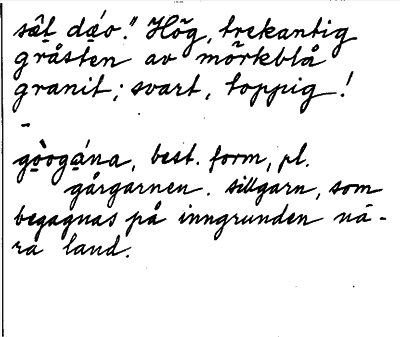 sâ̱t dá̱o." Hög, trekantig
gråsten av mörkblå
granit; svart, toppig!
-
gò̱ogá̱na, best. form, pl.
gårgarnen. sillgarn, som
begagnas på inngrunden nä-
ra land.